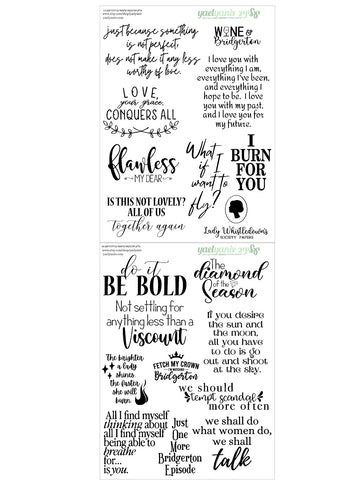 yaelyaniv
just because something
is not perfect,
does not make it any less
worthy of love.
WINE &
Bridgerton
I love you with
everything I am,
everything I've been,
and everything I
hope to be. I love
you with my past,
and I love you for
my future.
LOVE,
your grace,
CONQUERS ALL
flawless
MY DEAR
What
if I
want to
fly?
I
BURN
FOR
YOU
IS THIS NOT LOVELY?
ALL OF US
together again
Lady Whistledown's
SOCIETY PAPERS
yaelyaniv
do it
BE BOLD
The
diamond
of the
Season
Not settling for
anything less than a
Viscount
If you desire
the sun and
the moon,
all you have
to do is go
out and shoot
at the sky.
The brighter
a lady
shines,
the faster
she will
burn.
FETCH MY CROWN
Bridgerton
we should
tempt scandal
more often
All I find myself
thinking about
all I find myself
being able to
breathe
for...
is you.
Just
One
More
Bridgerton
Episode
we shall do
what women do,
we shall
talk